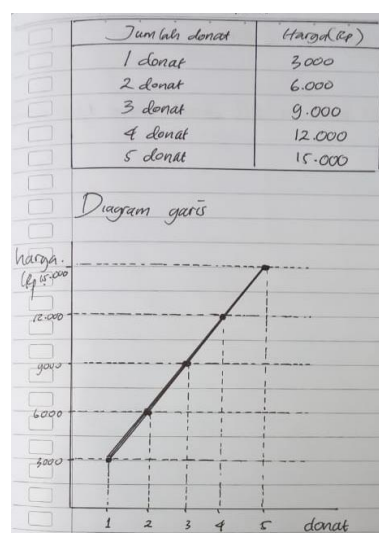 Jumlah donat Harga (Rp)
1 donat 3000
2 donat 6.000
3 donat 9.000
4 donat 12.000
5 donat 15.000
Diagram garis
harga.
(Rp 15.000
12.000
9000
6000
3000
1 2 3 4 5 donat